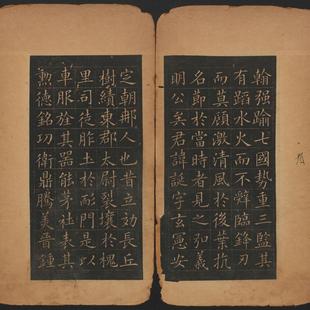 翰強踰七國勢重三監其
有蹈水火而不辭臨鋒刃
而莫顧激清風於後葉抗
名節於當時者見之弘義
明公矣君諱誕字玄憲安
定朝那人也昔立效長丘
樹績東郡太尉裂壤於槐
里司徒胙土於耏門是以
車服旌其器能茅社表其
勲德銘功衛鼎騰美晉鍾